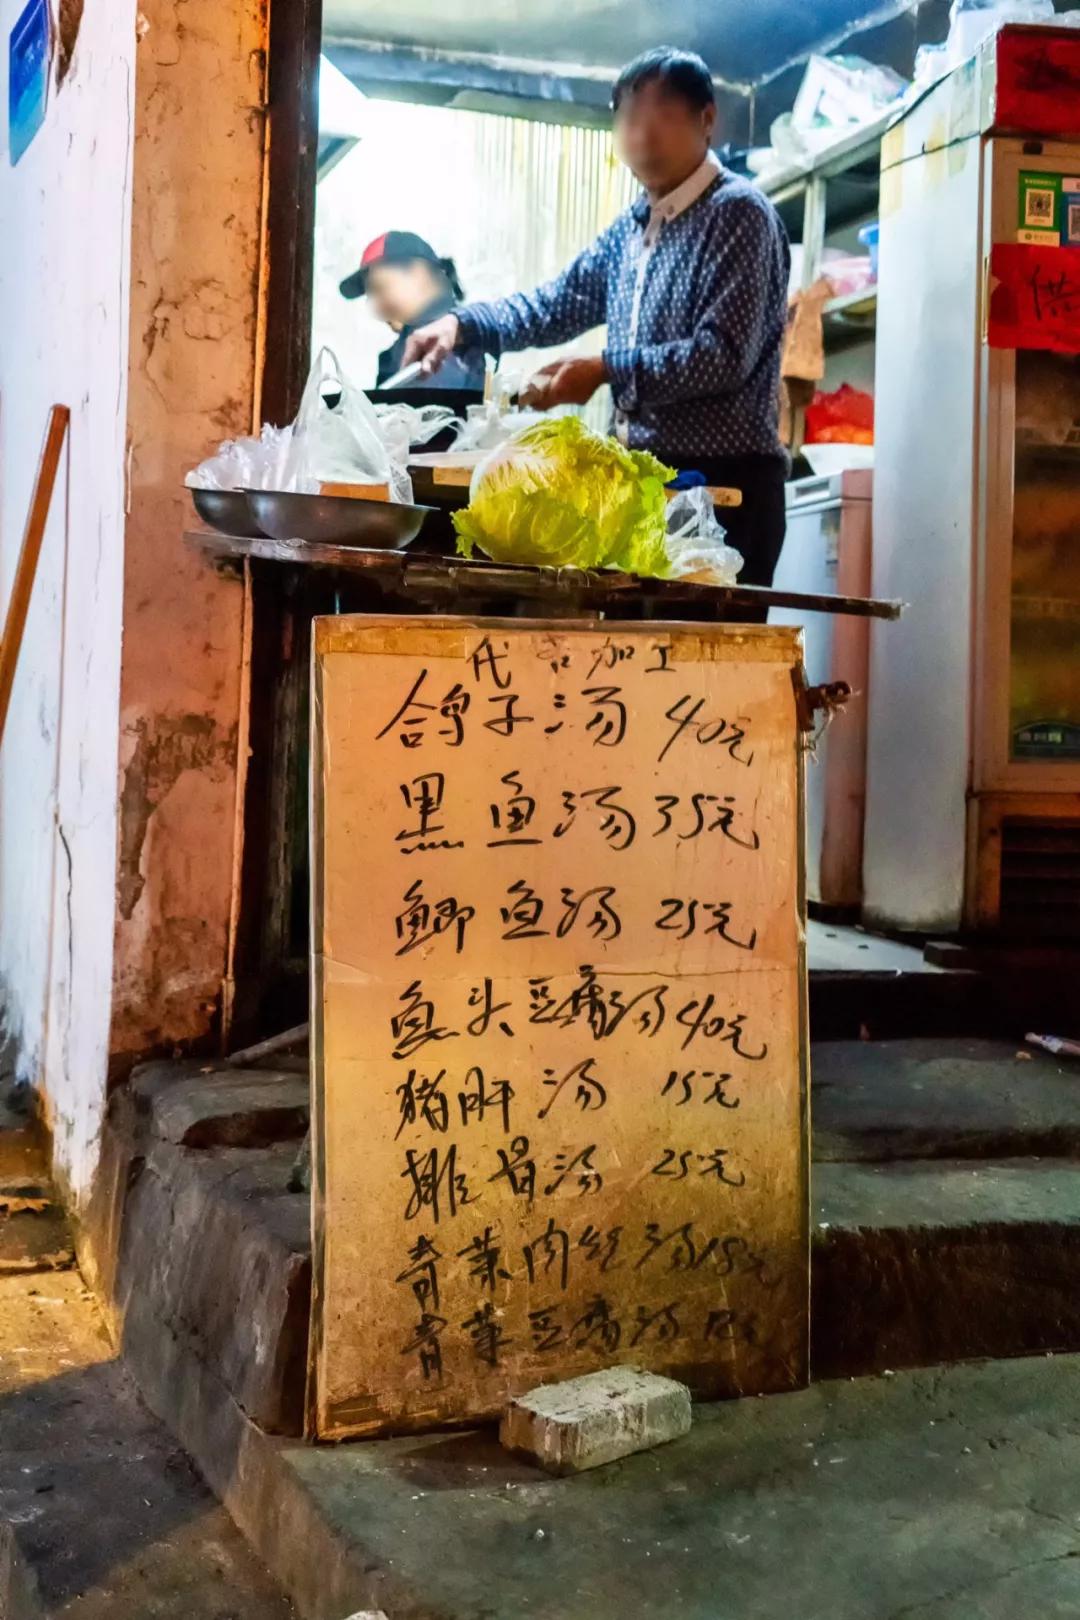 代客加工
鸽子汤 40元
黑鱼汤 35元
鲫鱼汤 25元
鱼头豆腐汤 40元
猪肝汤 15元
排骨汤 25元
青菜肉丝汤 18元
青菜豆腐汤 12元